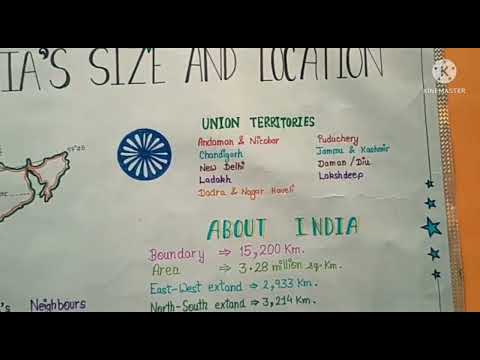 IA'S SIZE AND LOCATION
K
KINEMASTER
UNION TERRITORIES
Andaman & Nicobar
Chandigarh
New Delhi
Ladakh
Dadra & Nagar Haveli
Puducherry
Jammu & Kashmir
Daman/Diu
Lakshdeep
ABOUT INDIA
Boundary ⇒ 15,200 Km.
Area ⇒ 3.28 million sq. Km.
East-West extand ⇒ 2,933 Km.
North-South extand ⇒ 3,214 Km.
's Neighbours